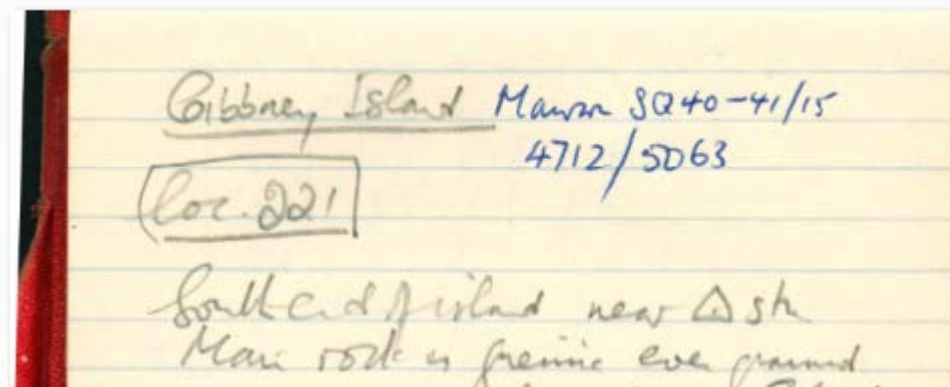 Gibbney Island Mawson SQ40-41/15
4712/5063
loc. 221
South end of island near △ stn
Main rock is even grained